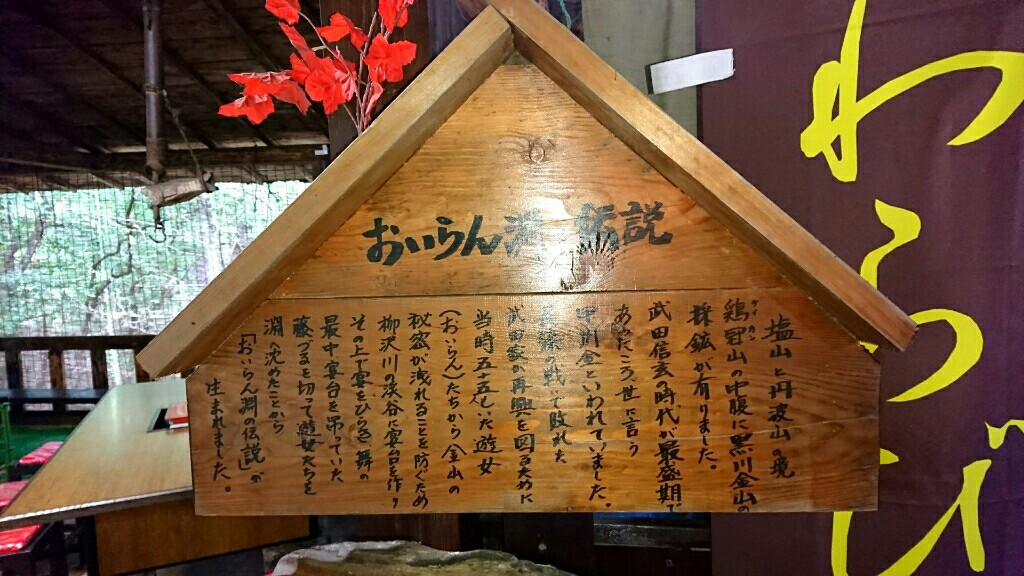 おいらん淵 伝説
塩山と丹波山の境
鶏冠山の中腹に黒川金山の
ケイカン
採鉱が有りました。
武田信玄の時代が最盛期で
あゝだこう世に言う
甲州金といわれていました。
の戦で敗れた
武田家の再興を図るために
当時五十五人いた遊女
(おいらん)たちから金山の
秘密が洩れることを防ぐため
柳沢川の渓谷に宴台を作り
その上で宴をひらき舞の
最中宴台を吊っていた
藤づるを切って遊女たちを
淵へ沈めたことから
「おいらん淵の伝説」が
生まれました。
わらび